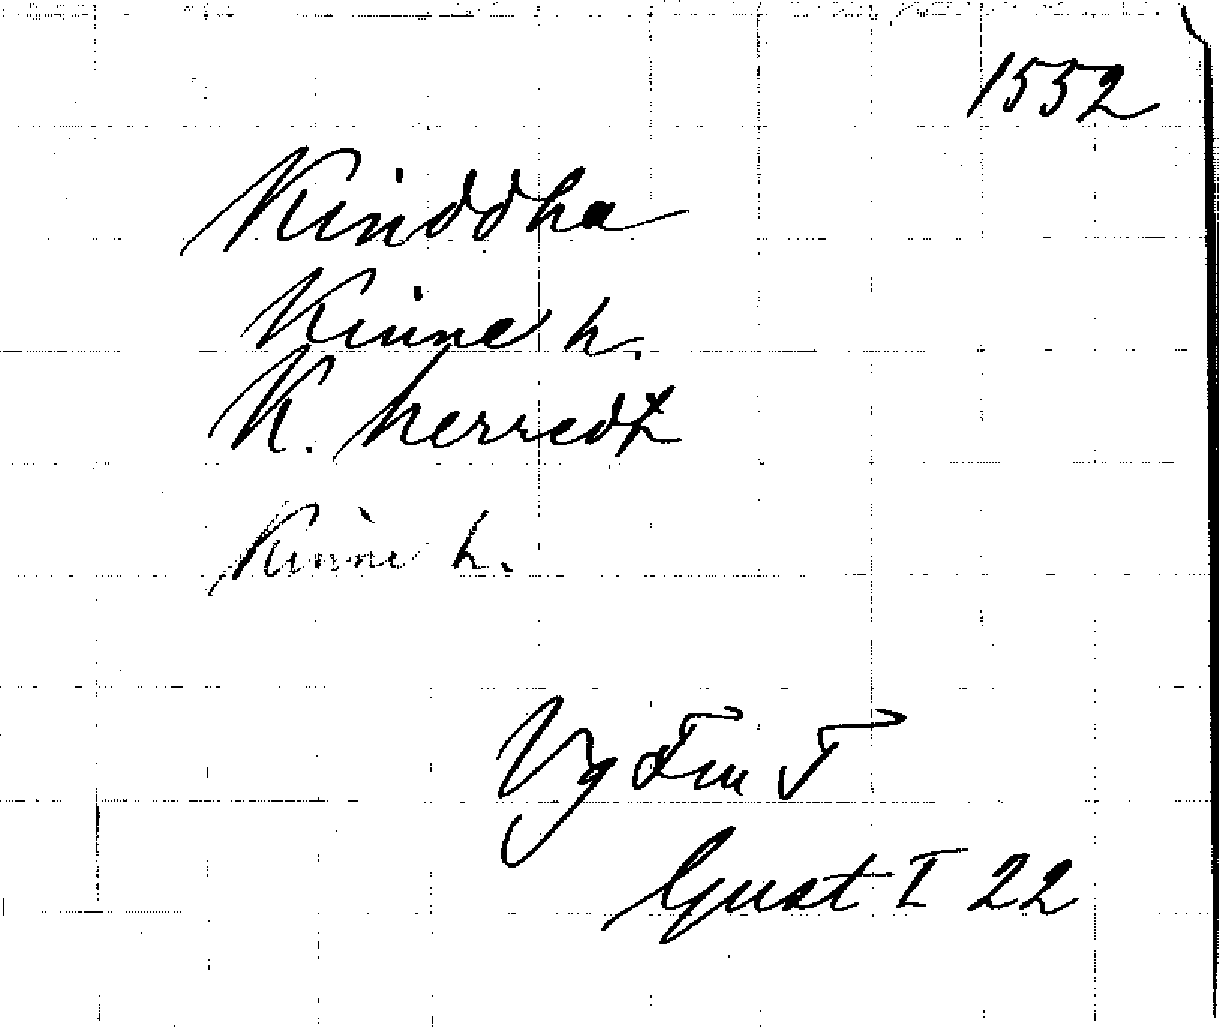 1552
Kinddha
Kinne h.
K. herredz
Kinne h.
Vg Fin T
Gust I 22